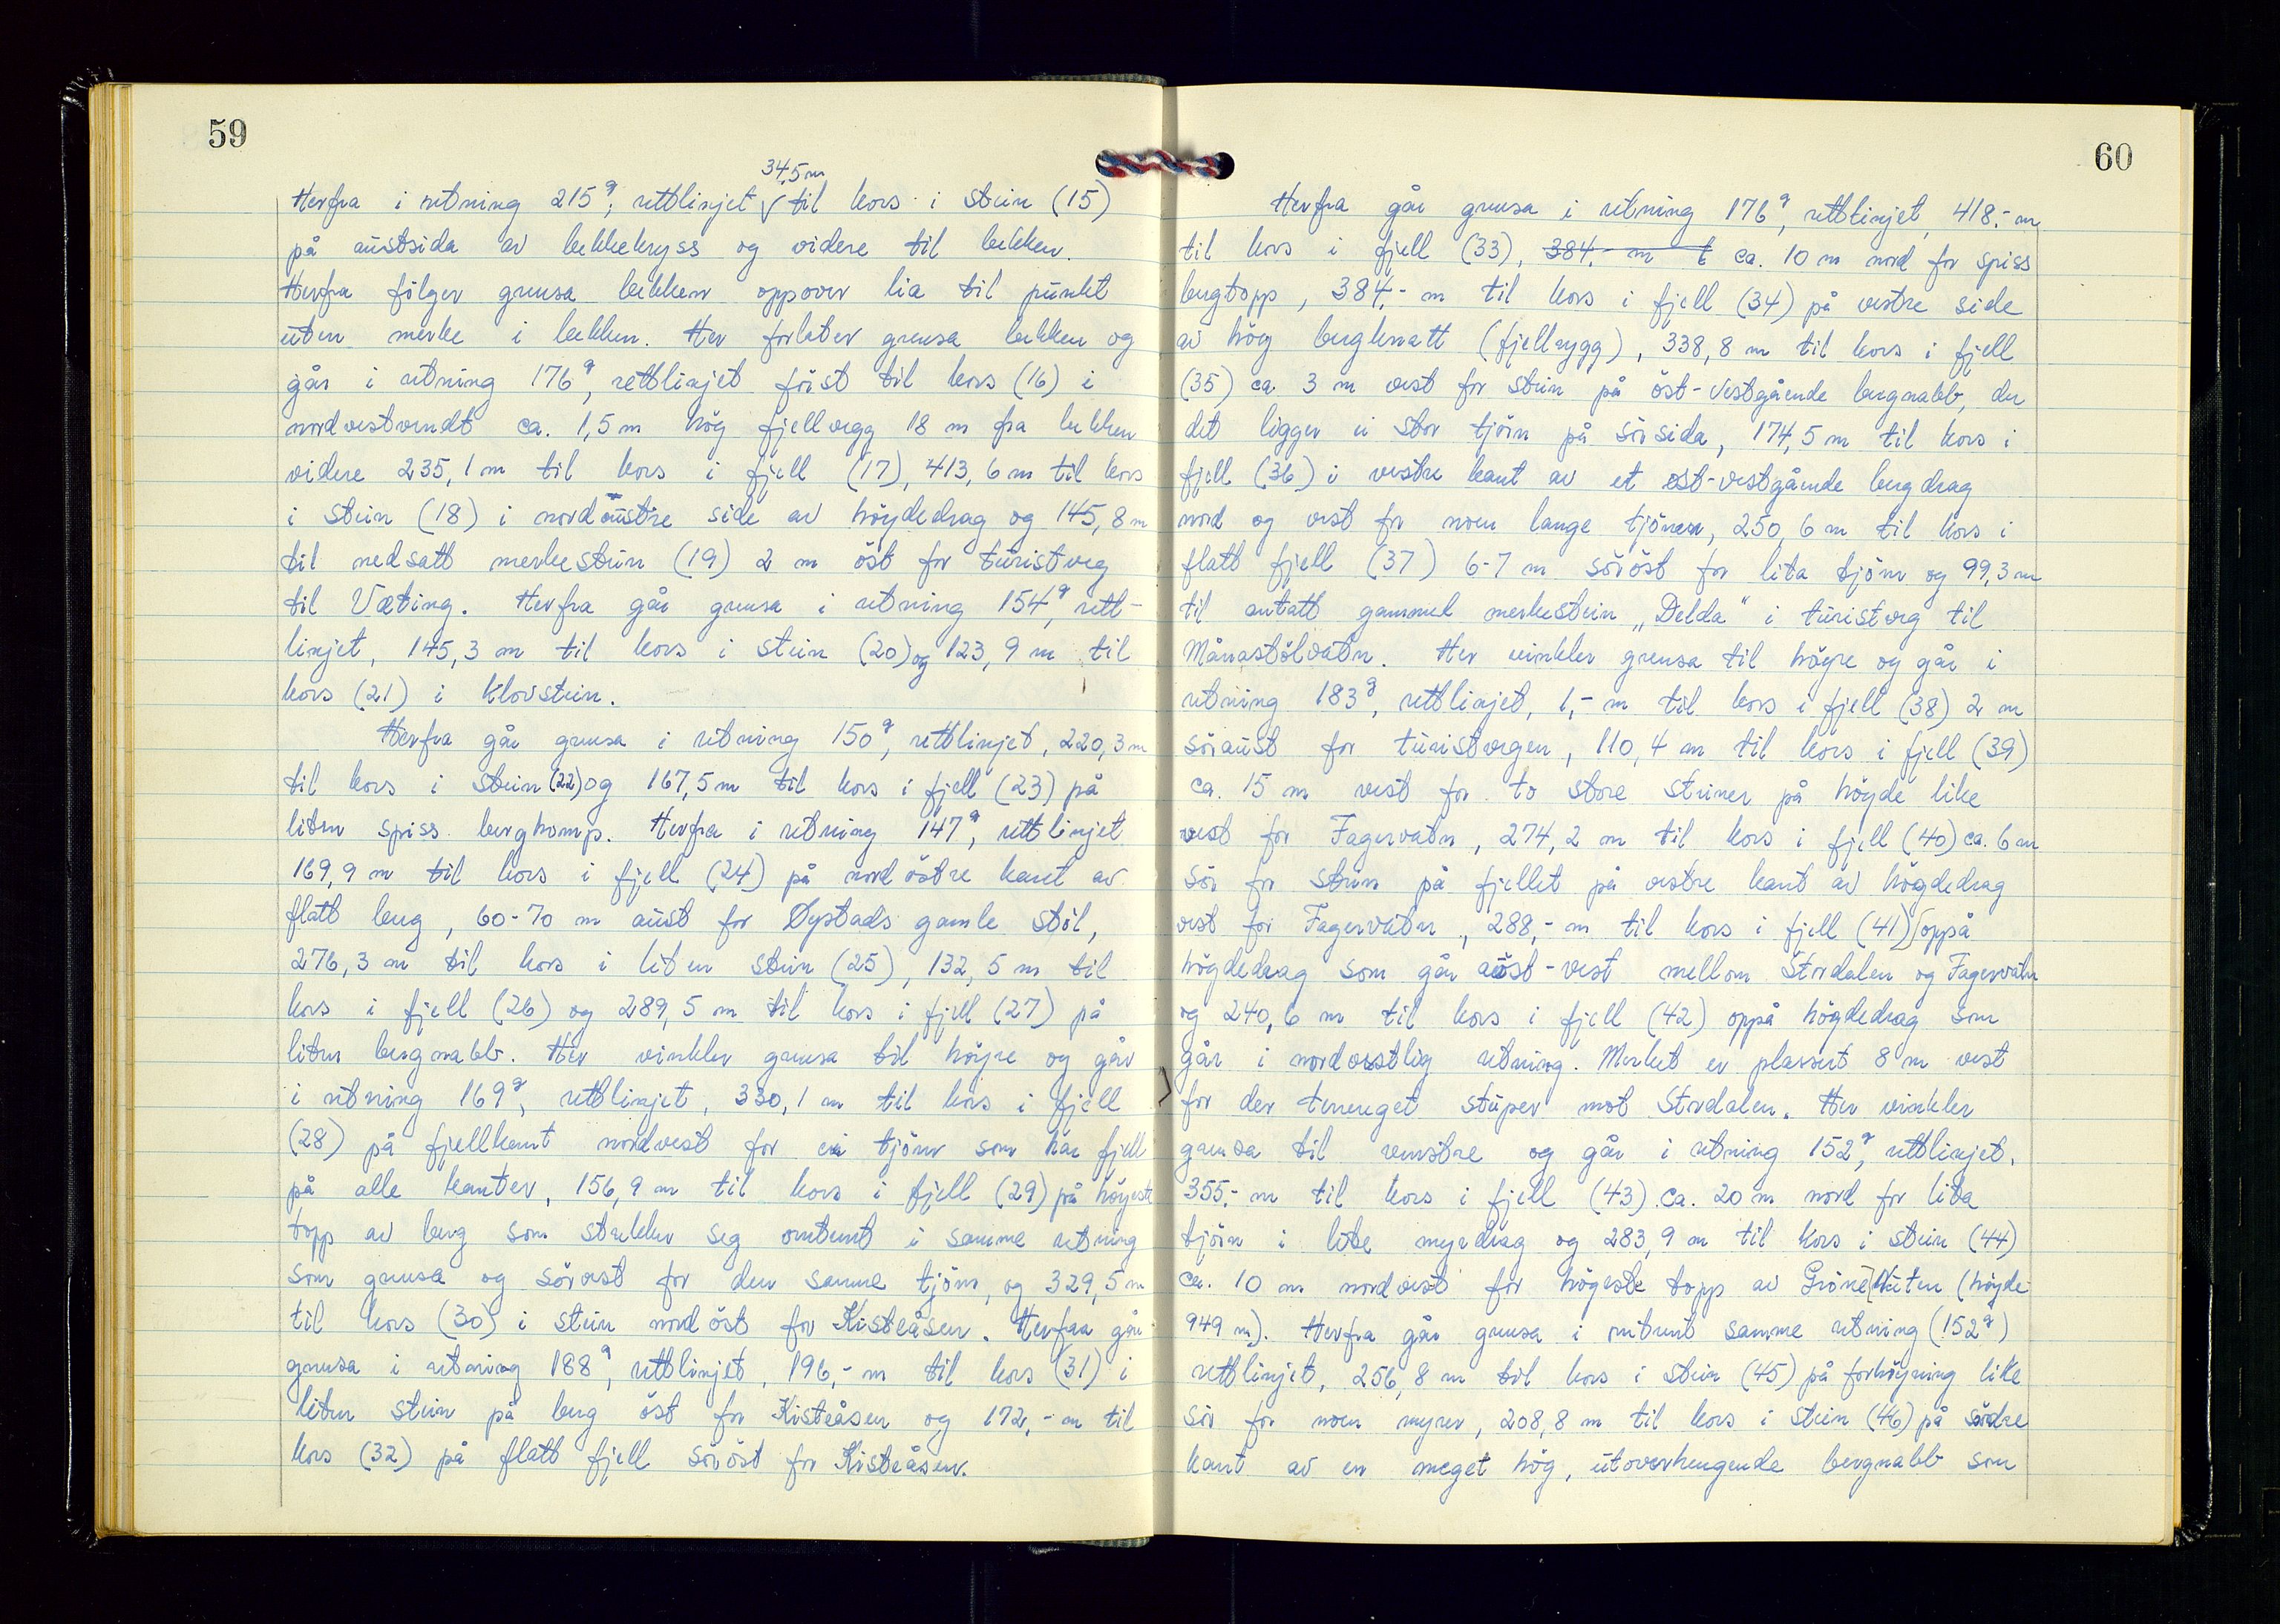 59
34,5 m
Herfra i retning 215g, rettlinjet √ til kors i stein (15)
på austsida av bekkekryss og videre til bekken.
Herfra følger grensa bekken oppover lia til punkt
uten merke i bekken. Her forlater grensa bekken og
går i retning 176g, rettlinjet først til kors (16) i
nordvestvendt ca. 1,5 m høg fjellvegg 18 m fra bekken
videre 235,1 m til kors i fjell (17), 413,6 m til kors
i stein (18) i nordaustre side av høydedrag og 145,8 m
til nedsatt merkestein (19) 2 m øst for turistveg
til Væting. Herfra går grensa i retning 154g, rett-
linjet, 145,3 m til kors i stein (20) og 123,9 m til
kors (21) i Klovstein.
Herfra går grensa i retning 150g, rettlinjet, 220,3 m
til kors i stein (22) og 167,5 m til kors i fjell (23) på
liten spiss berghomp. Herfra i retning 147g, rettlinjet
169,9 m til kors i fjell (24) på nordøstre kant av
flatt berg, 60-70 m aust for Dystads gamle støl,
276,3 m til kors i liten stein (25), 132,5 m til
kors i fjell (26) og 289,5 m til kors i fjell (27) på
liten bergnabb. Her vinkler grensa til høgre og går
i retning 169g, rettlinjet, 330,1 m til kors i fjell
(28) på fjellkant nordvest for ei tjönn som har fjell
på alle kanter, 156,9 m til kors i fjell (29) på høgeste
topp av berg som strekker seg omtrent i samme retning
som grensa og sørvest for den samme tjönn, og 329,5 m
til kors (30) i stein nordøst for Kisteåsen. Herfra går
grensa i retning 188g, rettlinjet, 196,- m til kors (31) i
liten stein på berg øst for Kisteåsen og 172,- m til
kors (32) på flatt fjell sørøst for Kisteåsen.
60
Herfra går grensa i retning 176g, rettlinjet, 418,- m
til kors i fjell (33), 384,- m t ca. 10 m nord for spiss
bergtopp, 384,- m til kors i fjell (34) på vestre side
av høg bergknatt (fjellrygg), 338,8 m til kors i fjell
(35) ca. 3 m vest for stein på øst-vestgående bergnabb, der
det ligger ei stor tjörn på sørsida, 174,5 m til kors i
fjell (36) i vestre kant av et øst-vestgående bergdrag
nord og vest for noen lange tjörner, 250,6 m til kors i
flatt fjell (37) 6-7 m sørøst for lita tjönn og 99,3 m
til antatt gammel merkestein „Delda" i turistveg til
Månastölvatn. Her vinkler grensa til høgre og går i
retning 183g, rettlinjet, 1,- m til kors i fjell (38) 2 m
søraust for turistvegen, 110,4 m til kors i fjell (39)
ca. 15 m vest for to store steiner på høgde like
vest for Fagervatn, 274,2 m til kors i fjell (40) ca. 6 m
sør for stein på fjellet på vestre kant av høgdedrag
vest for Fagervatn, 288,- m til kors i fjell (41) oppå
høgdedrag som går aust-vest mellom Stordalen og Fagervatn
og 240,6 m til kors i fjell (42) oppå høgdedrag som
går i nordvestlig retning. Merket er plassert 8 m vest
for der terrenget stuper mot Stordalen. Her vinkler
grensa til venstre og går i retning 152g, rettlinjet,
355,- m til kors i fjell (43) ca. 20 m nord for lita
tjörn i lite myrdrag og 283,9 m til kors i stein (44)
ca. 10 m nordvest for høgeste topp av Grönenuten (høgde
949 m). Herfra går grensa i omtrent samme retning (152g)
rettlinjet, 256,8 m til kors i stein (45) på forhøgning like
sør for noen myrer, 208,8 m til kors i stein (46) på søndre
kant av en meget høg, utoverhengende bergnabb som